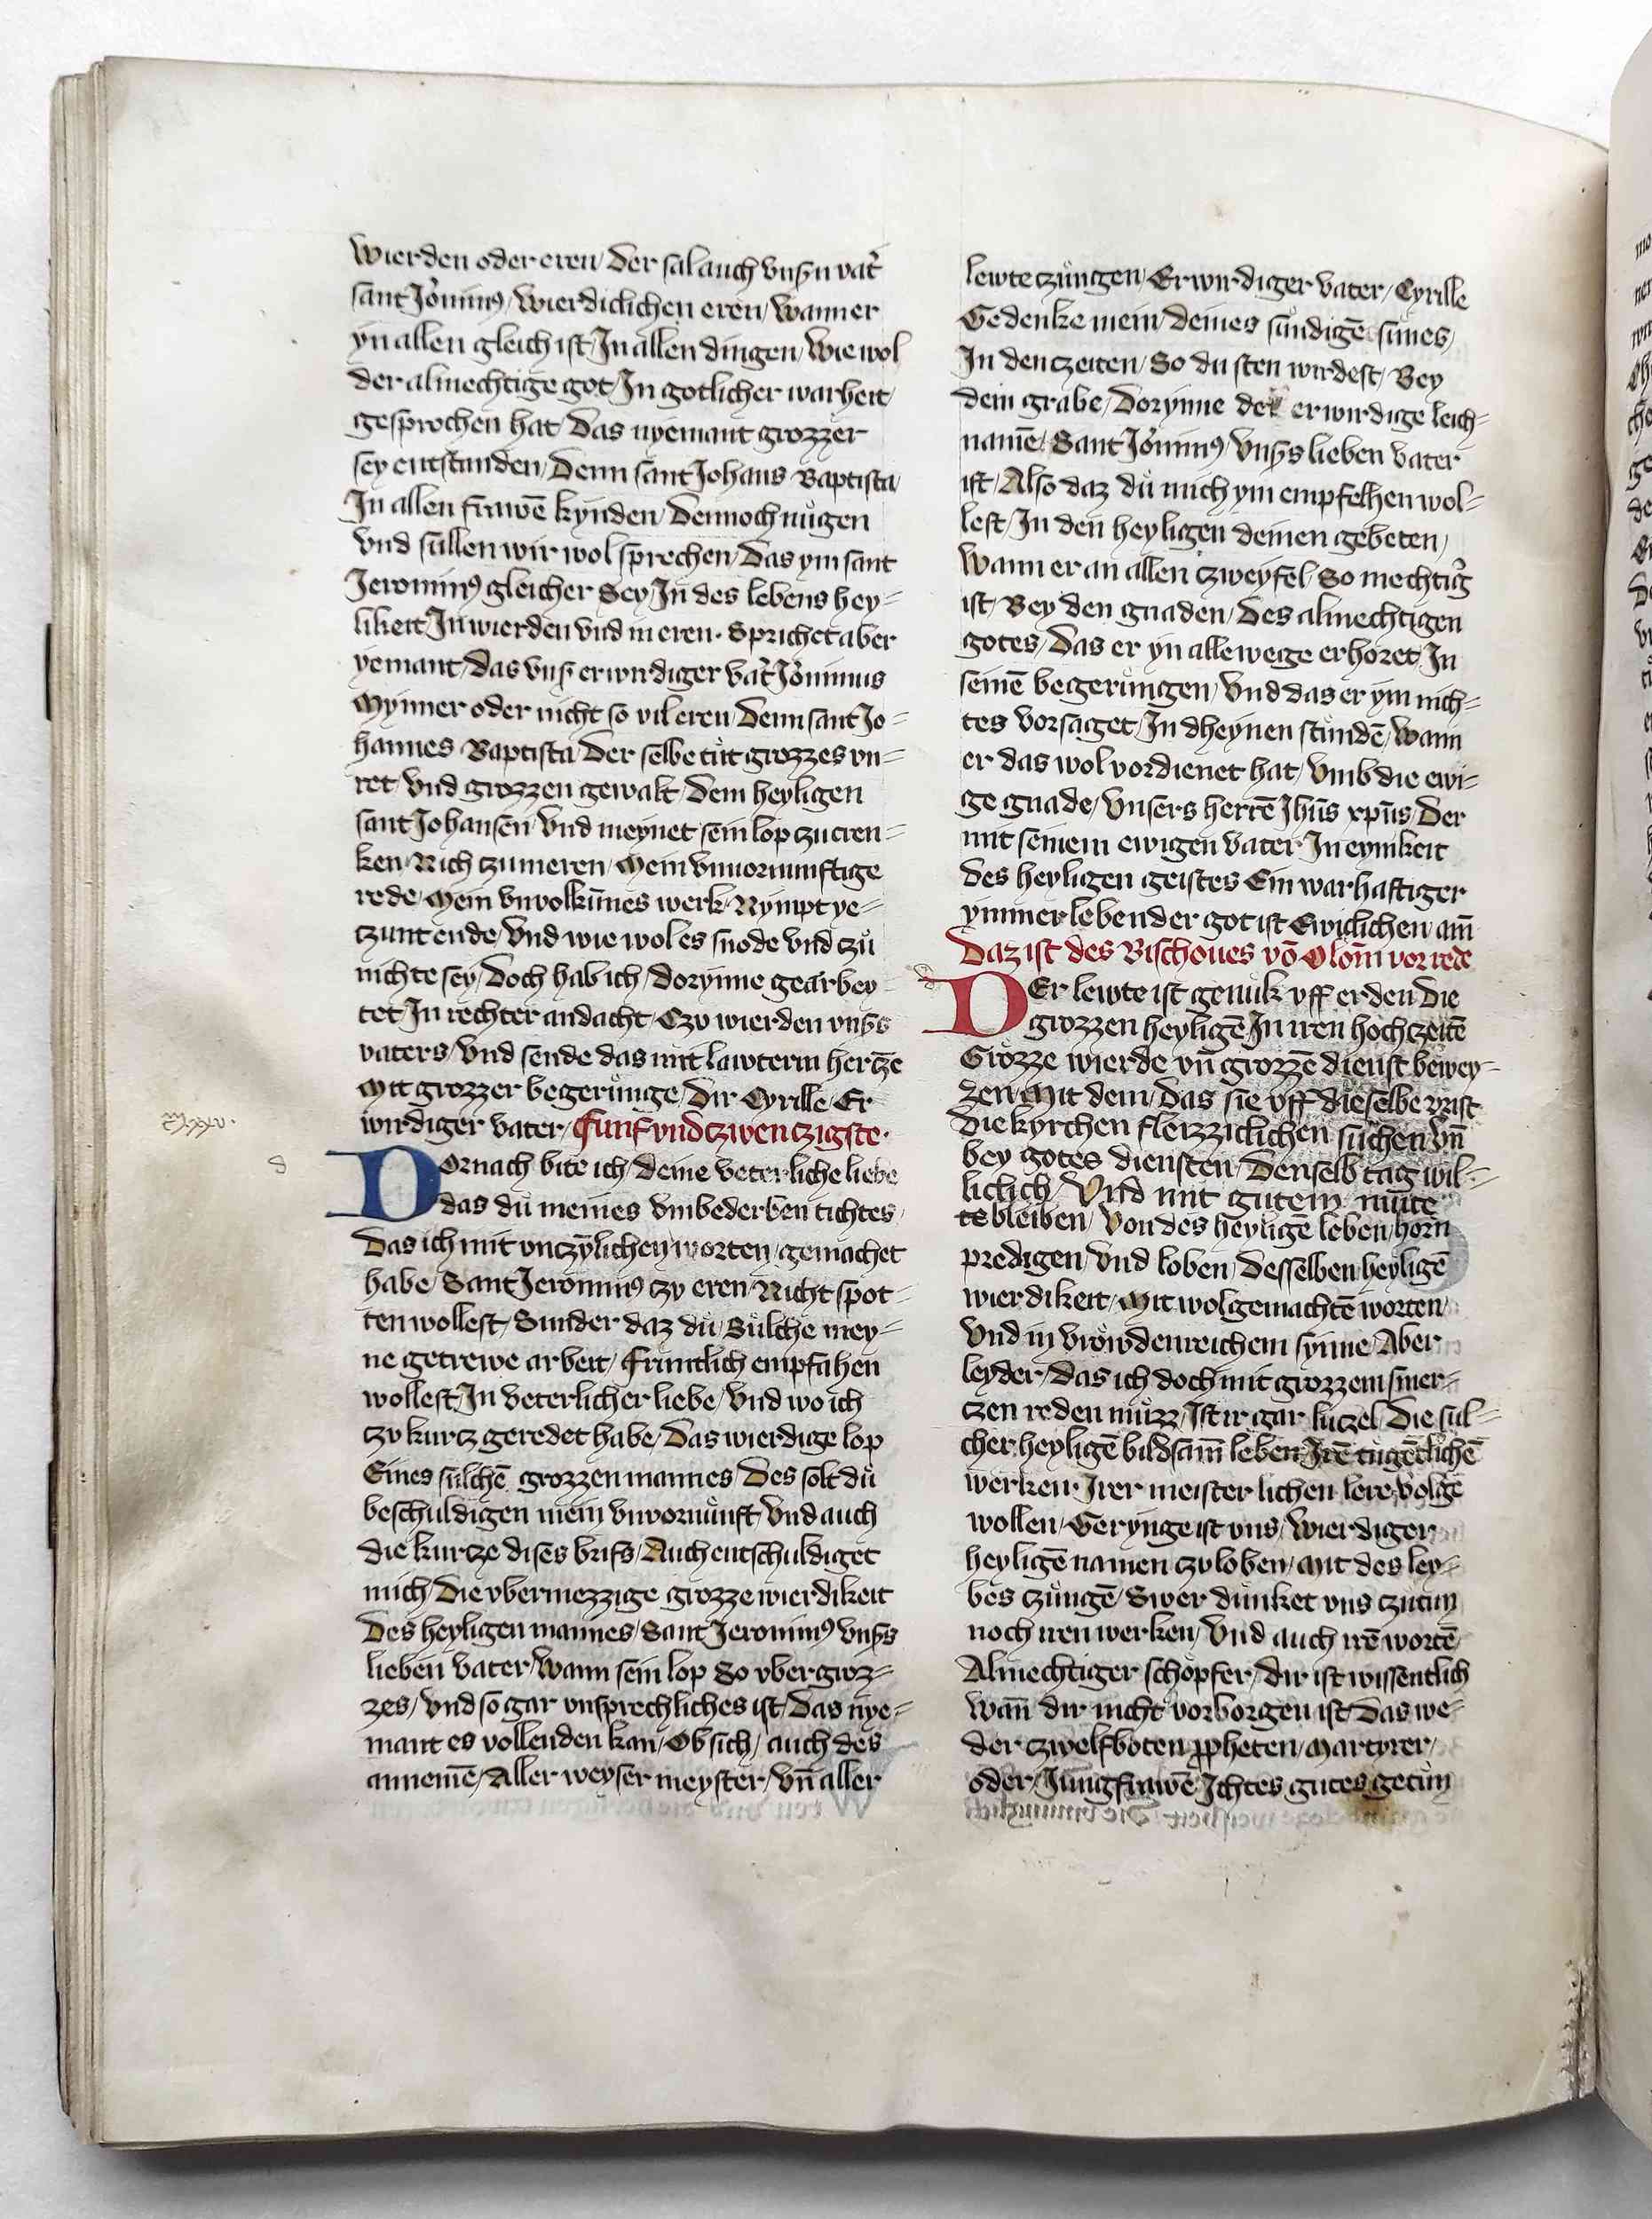 wierden oder eren / Der sal auch vnsꝛn vat̉
sant Jo̓nimꝰ / wierdiclichen eren / wann er
yn allen gleich ist / In allen dingen / wie wol
der almechtige got / In gotlicher warheit /
gesprochen hat / Das nyemant grozzer
sey entstanden / Denn sant Johans Baptista /
In allen frawē kynden / Dennoch mu̓gen
vnd sullen wir wol sprechen / Das ym sant
Jeronimꝰ gleicher Sey / In des lebens hey⸗
likeit / In wierden vnd in eren · Sprichet aber
yemant / das vnsꝛ erwirdiger vat̉ Jo̓nimus
Mynner oder nicht so vil eren / Denn sant Jo⸗
hannes Baptista / Der selbe tůt grozzes vn⸗
ret / vnd grozzen gewalt / Dem heyligen
sant Johansen / vnd meynet sein lop zu cren⸗
ken / Nich zu meren / Mein vnuornunftige
rede / Mein vnvolkūmes werk / Nympt ye⸗
czunt ende / vnd wie wol es snode vnd zů
nichte sey / Doch hab ich / dorynne gearbey⸗
tet / In rechter andacht / Czv wierden vnsꝛs
vaters / vnd sende das mit lawterm hertzē
Mit grozzer begerůnge / Dir Cyrille / Er
wirdiger vater / Funf vnd czwenczigste ·
xxv.
d
DOrnach bite ich / deine veterliche liebe
das dů meines vmbederben tichtes /
Das ich mit vnczylichen worten / gemachet
habe / Sant Jeronimꝰ czv eren / Nicht spot⸗
ten wollest / Sunder daz dů / Sůlche mey⸗
ne getrewe arbeit / fruntlich empfahen
wollest / In veterlicher liebe / vnd wo ich
czv kurcz geredet habe / Das wierdige lop
Eines sulchē grozzen mannes / Des solt dů
beschuldigen mein vnvornůnft / vnd auch
die kurcze dises brifs / Auch entschuldiget
mich / Die vbermezzige grozze wierdikeit
Des heyligen mannes / Sant Jeronimꝰ vnsꝛs
lieben vater / Wann sein lop So vbergroz⸗
zes / vnd so gar vnsprechliches ist / Das nye⸗
mant es vollenden kan / Ob sich / auch des
annemē / Aller weyser meyster / vn̄ aller
lewte czůngen / Erwirdiger vater / Cyrille
Gedenke mein / deines sundigē sunes /
In den czeiten / So du sten wirdest / Bey
dem grabe / Dorynne der erwirdige leich⸗
namē / Sant Jo̓nimꝰ / vnsꝛs lieben vater
ist / Also daz dů mich ym empfelhen wol⸗
lest / In den heyligen deinen gebeten /
Wann er an allen czweyfel / So mechtig̉
ist / Bey den gnaden / Des almechtigen
gotes / Das er yn alle wege erhoret / In
seinē begerůngen / vnd das er ym nich⸗
tes vorsaget / In dheynen stundē / wann
er das wol vordienet hat / vmb die ewi⸗
ge gnade / vnsers herrē Jhūs xpūs / Der
mit seinem ewigen vater / In eynikeit
des heyligen geistes Ein warhaftiger
ymmer lebender got ist Ewiclichen / am̄
Daz ist des Bischoues vō Olom̄ vorrede
d
DEr lewte ist genůk vff erden Die
grozzen heyligē / In iren hochczeitē
Grozze wierde vn̄ grozzē dienst bewey⸗
zen / Mit dem / Das sie vff dieselbe vrist
die kyrchen fleizziclichen suchen / vn̄
bey gotes diensten / Denselb tag wil⸗
liclich / Vnd mit gutem můte
te bleiben / von des heyligē leben / horn
predigen / vnd loben / desselben heyligē
wierdikeit / Mit wolgemachtē worten /
vnd in vrowdenreichem synne / Aber
leyder / das ich doch mit grozzem smer⸗
czen reden můzz / Ist ir gar luczel / Die sul⸗
cher heyligē bildsam̄ leben / Irē tugētlichē
werken / Irer meisterlichen lere / volgē
wollen / Gerynge ist vns / wierdiger
heyligē namen czv loben / mit des ley⸗
bes czůngē / Swer dunket vns czu tun
noch iren werken / vnd auch irē wortē
Almechtiger schopfer / dir ist wissentlich
wan̄ dir nicht vorborgen ist Das we⸗
der czwelfboten ꝓpheten / martyrer /
oder / Jungfrawē / Ichtes gutes getun